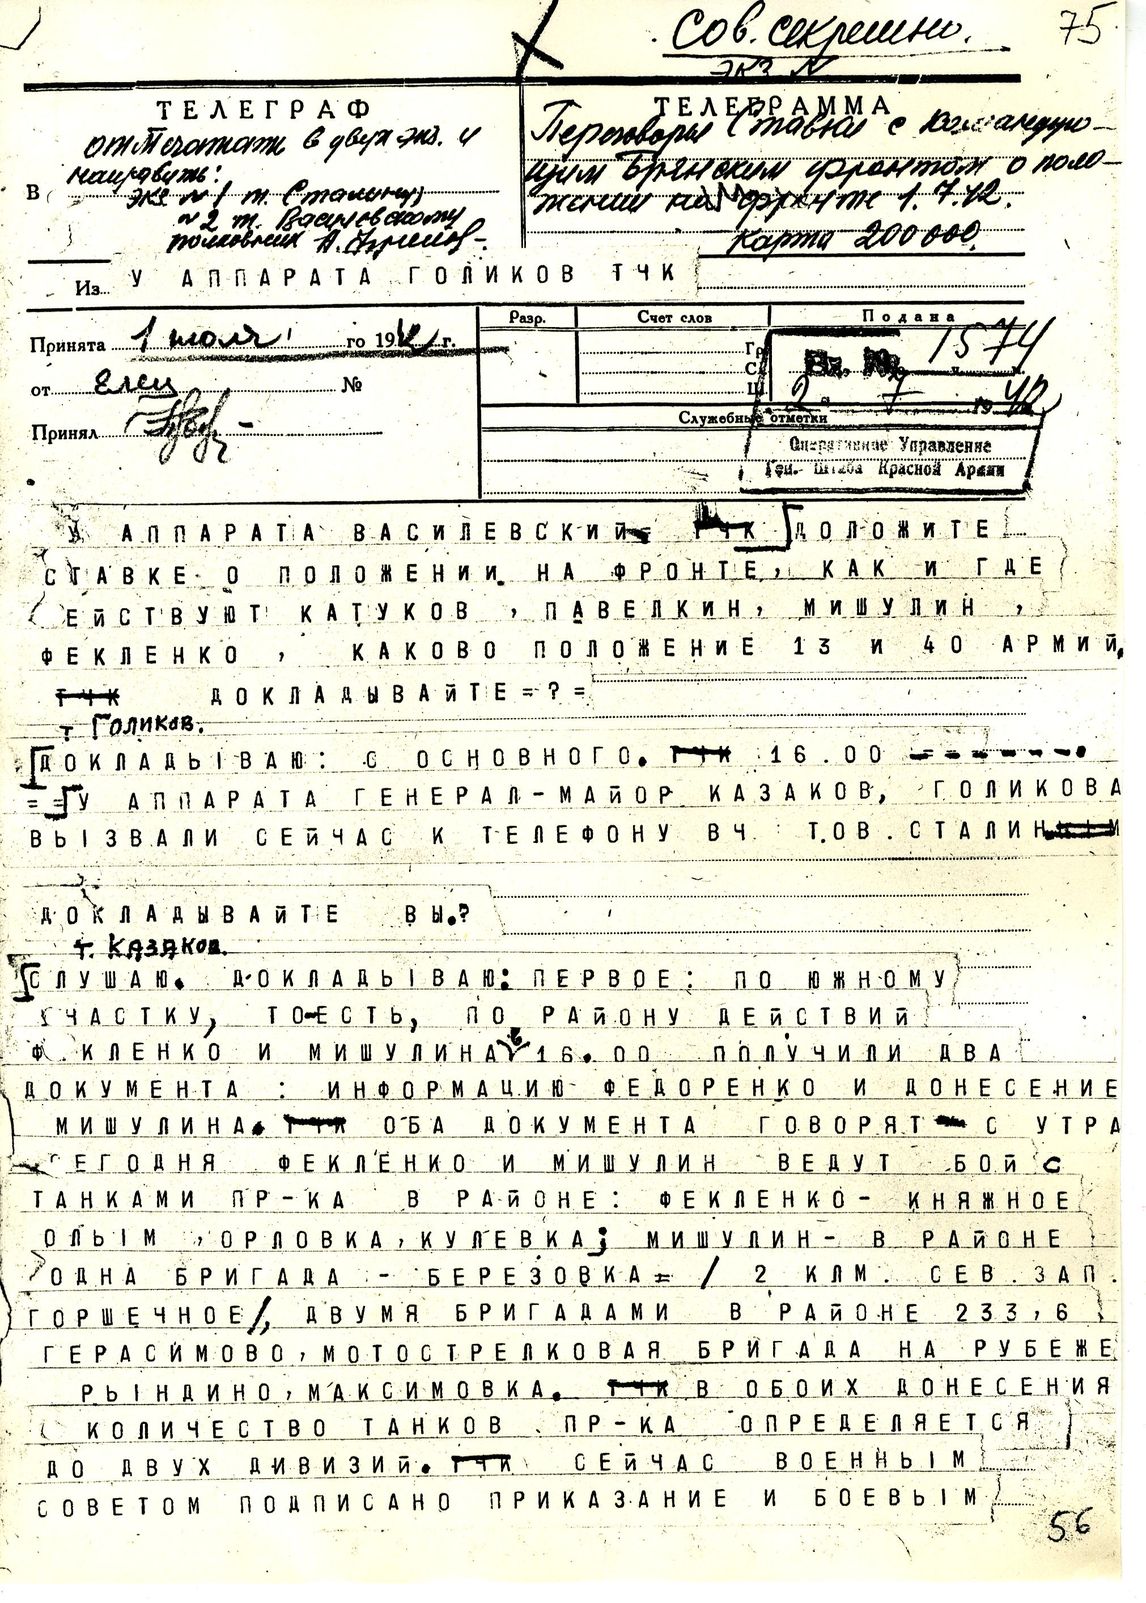 Сов. секретно.
75
экз №
ТЕЛЕГРАФ
ТЕЛЕГРАММА
отпечатать в двух экз. и
направить:
В экз № 1 т. Сталину
№ 2 т. Василевскому
полковник
Переговоры Ставки с командую-
щим Брянским фронтом о поло-
жении на фронте 1.7.42.
Карта 200000.
Из У АППАРАТА ГОЛИКОВ ТЧК
Разр.
Счет слов
Подана
Принята 1 июля го 1942 г.
от Елец №
Принял
Гр
Сл
Ш
Вх. № 1574
2 " 7 го 42
Служебные отметки
Оперативное Управление
Ген. Штаба Красной Армии
У АППАРАТА ВАСИЛЕВСКИЙ= ТЧК ДОЛОЖИТЕ
СТАВКЕ О ПОЛОЖЕНИИ НА ФРОНТЕ, КАК И ГДЕ
ЕЙСТВУЮТ КАТУКОВ , ПАВЕЛКИН, МИШУЛИН ,
ФЕКЛЕНКО , КАКОВО ПОЛОЖЕНИЕ 13 И 40 АРМИЙ,
ТЧК ДОКЛАДЫВАЙТЕ=?=
т Голиков.
ДОКЛАДЫВАЮ: С ОСНОВНОГО. ТЧК 16.00 -------
==У АППАРАТА ГЕНЕРАЛ-МАЙОР КАЗАКОВ, ГОЛИКОВА
ВЫЗВАЛИ СЕЙЧАС К ТЕЛЕФОНУ ВЧ ТОВ.СТАЛИН
ДОКЛАДЫВАЙТЕ ВЫ.?
т. Казаков.
СЛУШАЮ. ДОКЛАДЫВАЮ: ПЕРВОЕ: ПО ЮЖНОМУ
УЧАСТКУ, ТО-ЕСТЬ, ПО РАЙОНУ ДЕЙСТВИЙ
Ф КЛЕНКО И МИШУЛИНА в 16.00 ПОЛУЧИЛИ ДВА
ДОКУМЕНТА : ИНФОРМАЦИЮ ФЕДОРЕНКО И ДОНЕСЕНИЕ
МИШУЛИНА. ТЧК ОБА ДОКУМЕНТА ГОВОРЯТ - С УТРА
СЕГОДНЯ ФЕКЛЕНКО И МИШУЛИН ВЕДУТ БОЙ С
ТАНКАМИ ПР-КА В РАЙОНЕ: ФЕКЛЕНКО- КНЯЖНОЕ
ОЛЫМ ,ОРЛОВКА,КУЛЕВКА; МИШУЛИН- В РАЙОНЕ
ОДНА БРИГАДА - БЕРЕЗОВКА= / 2 КЛМ. СЕВ.ЗАП.
ГОРШЕЧНОЕ/, ДВУМЯ БРИГАДАМИ В РАЙОНЕ 233,6
ГЕРАСИМОВО,МОТОСТРЕЛКОВАЯ БРИГАДА НА РУБЕЖЕ
РЫНДИНО,МАКСИМОВКА. ТЧК В ОБОИХ ДОНЕСЕНИЯ
КОЛИЧЕСТВО ТАНКОВ ПР-КА ОПРЕДЕЛЯЕТСЯ
ДО ДВУХ ДИВИЗИЙ. ТЧК СЕЙЧАС ВОЕННЫМ
СОВЕТОМ ПОДПИСАНО ПРИКАЗАНИЕ И БОЕВЫМ
56